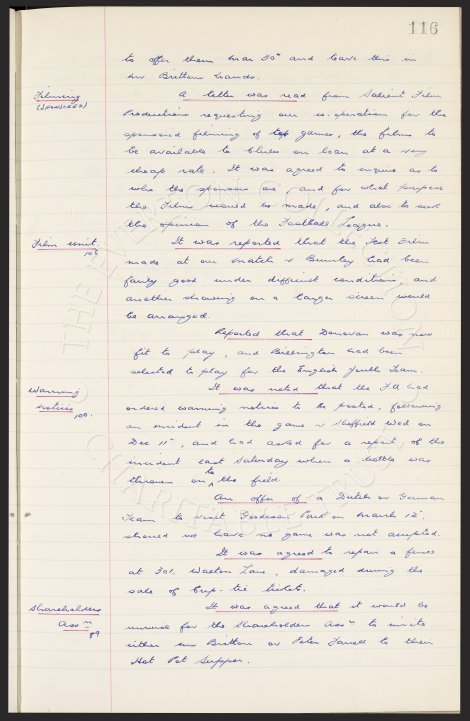 116
to offer them Mar 30th and leave this in
Mr Britton hands.
Filming
(Sponsored)
A letter was read from Salient Film
Productions requesting our co-operation for the
sponsored filming of top games, the films to
be available to Clubs on loan at a very
cheap rate. It was agreed to inquire as to
who the sponsors are, and for what purpose
the Films would be made, and also to seek
the opinion of the Football League.
Film Unit.
It was reported that the Test Film
made at our match v Burnley had been
fairly good under difficult conditions, and
another showing on a larger screen would
be arranged.
Reported that Donovan was now
fit to play, and Billington had been
selected to play for the English Youth Team.
Warning
notices
100.
It was noted that the F.A. had
ordered warning notices to be posted, following
an incident in the game v Sheffield Wed on
Dec 11th, and had asked for a report of the
incident last Saturday when a bottle was
thrown on to the field.
An offer of a Dutch or German
Team to visit Goodison Park on March 12th
should we have no game was not accepted.
It was agreed to repair a fence
at 301. Walton Lane, damaged during the
sale of Cup-tie tickets.
Shareholders
Assn
99
It was agreed that it would be
unwise for the Shareholders Assn to invite
either Mr Britton or Peter Farrell to their
Hot Pot Supper.